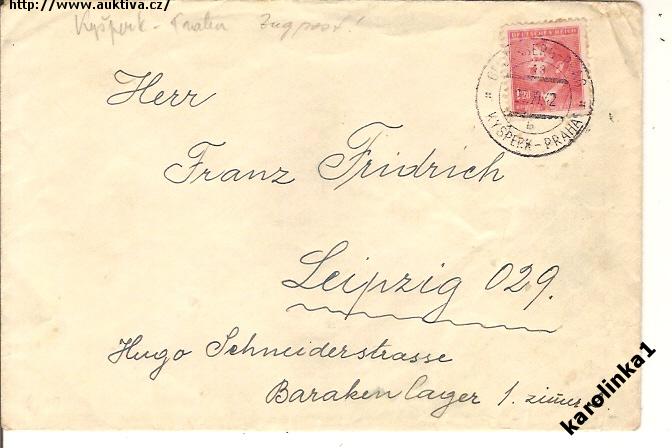 http://www.auktiva.cz/
Kyšperk - Praha Zugpost!
DEUTSCHES REICH
KYŠPERK - PRAHA
b
Herr
Franz Fridrich
Leipzig 029.
Hugo Schneiderstrasse
Baraken Lager 1.
karolinka1